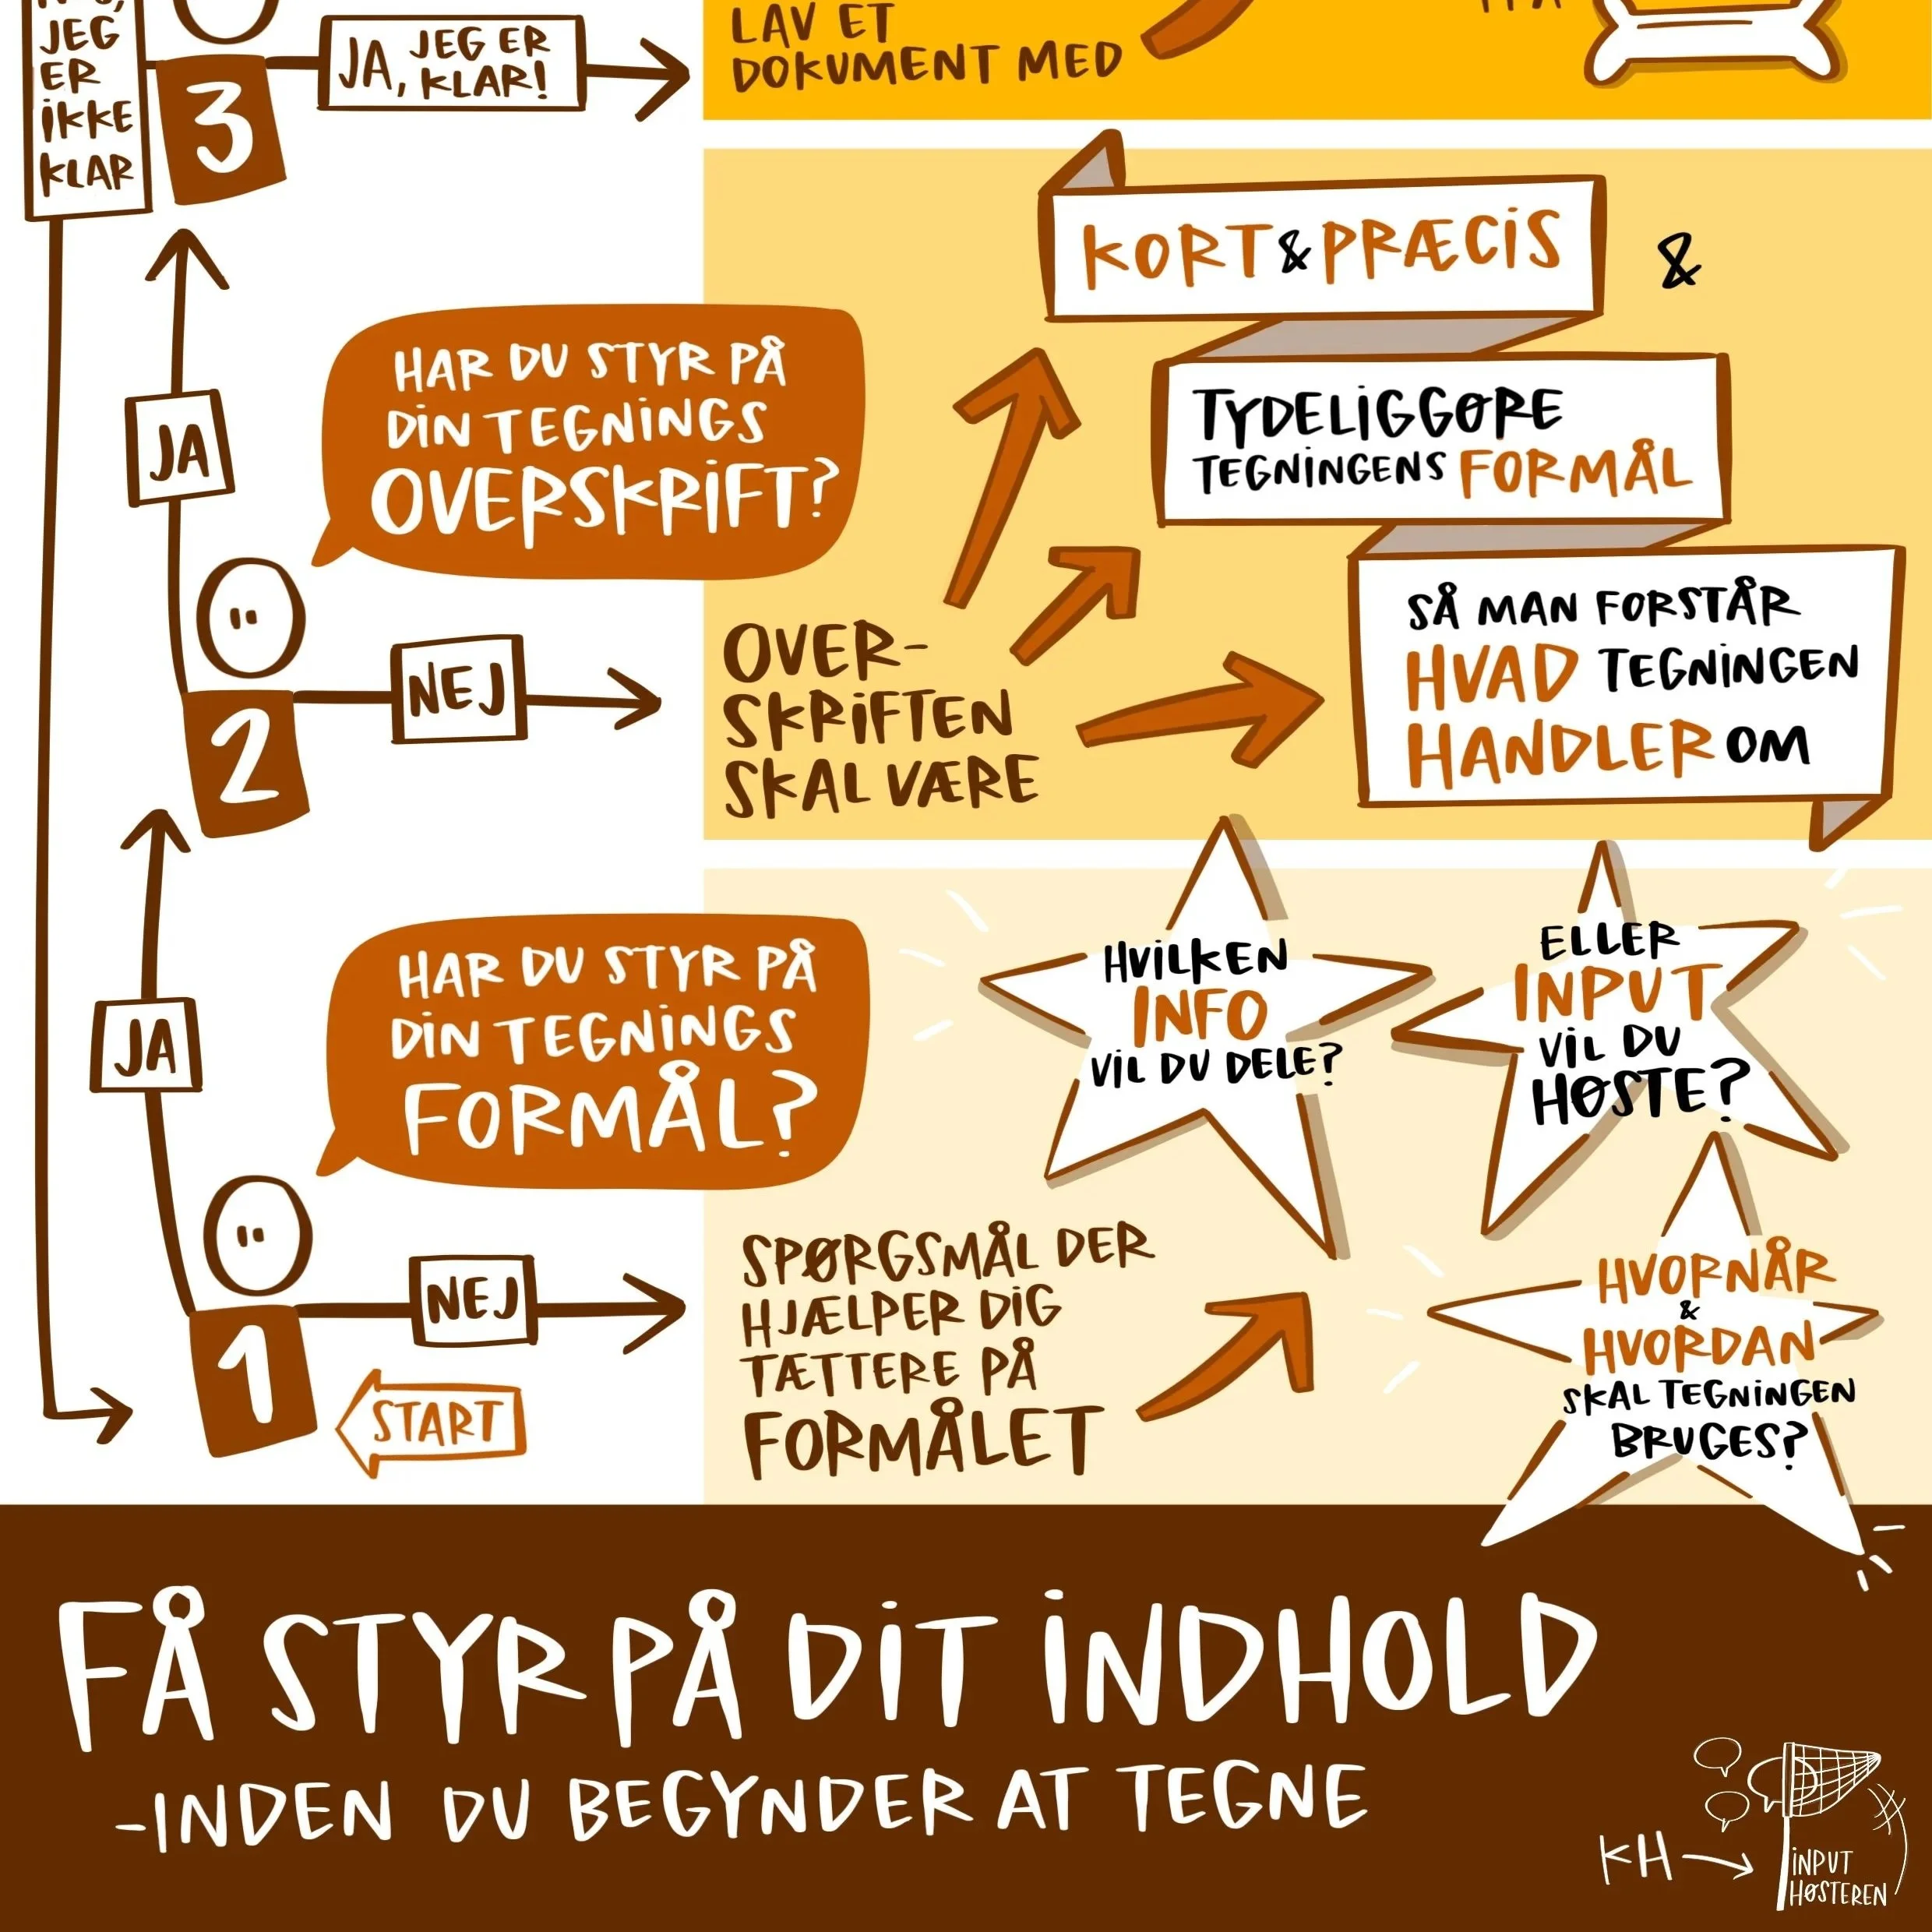 JEG
ER
IKKE
KLAR
3
JA, JEG ER
KLAR!
LAV ET
DOKUMENT MED
KORT & PRÆCIS
&
TYDELIGGØRE
TEGNINGENS FORMÅL
SÅ MAN FORSTÅR
HVAD TEGNINGEN
HANDLER OM
HAR DU STYR PÅ
DIN TEGNINGS
OVERSKRIFT?
JA
2
NEJ
OVER-
SKRIFTEN
SKAL VÆRE
HAR DU STYR PÅ
DIN TEGNINGS
FORMÅL?
JA
HVILKEN
INFO
VIL DU DELE?
ELLER
INPUT
VIL DU
HØSTE?
HVORNÅR
&
HVORDAN
SKAL TEGNINGEN
BRUGES?
1
NEJ
START
SPØRGSMÅL DER
HJÆLPER DIG
TÆTTERE PÅ
FORMÅLET
FÅ STYR PÅ DIT INDHOLD
-INDEN DU BEGYNDER AT TEGNE
KH
INPUT
HØSTEREN